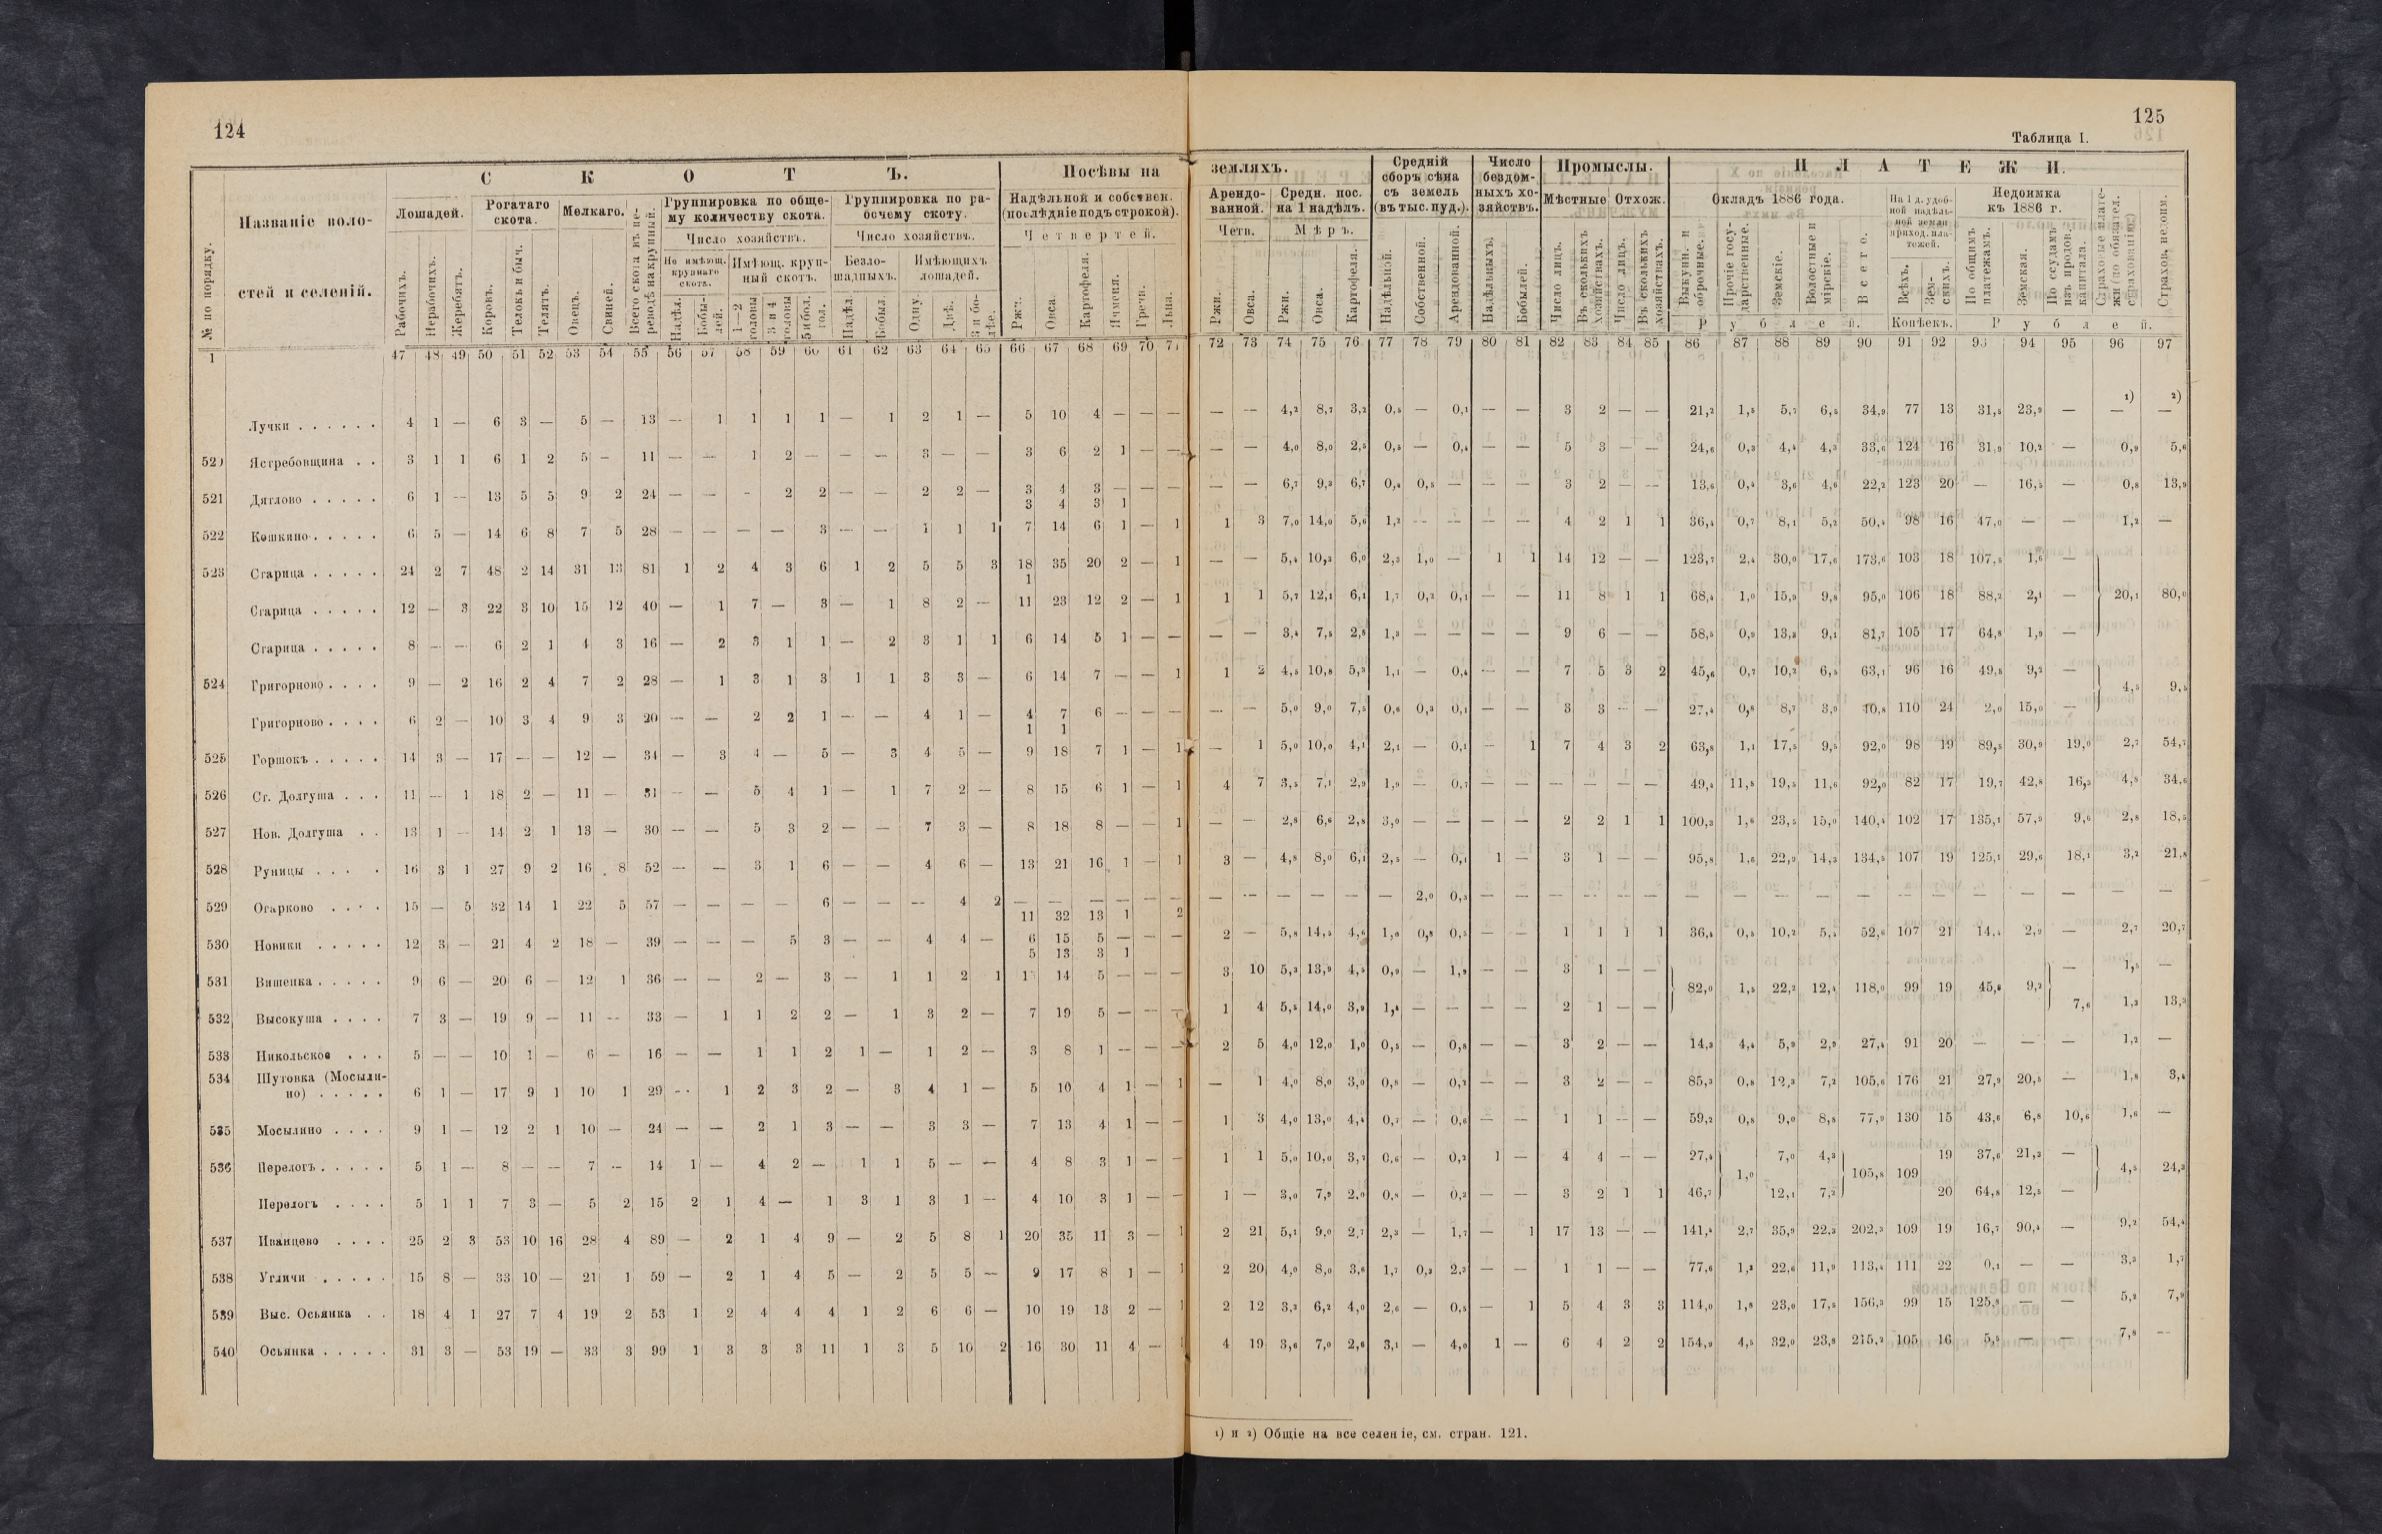 124
С К О Т Ъ.
Посѣвы на
№ по порядку.
Названіе воло-
стей и селеній.
Лошадей.
Рогатаго
скота.
Мелкаго.
Группировка по обще-
му количеству скота.
Группировка по ра-
бочему скоту.
Надѣльной и собствен.
(послѣдніе подъ строкой).
Число хозяйствъ.
Число хозяйствъ.
Четвертей.
Не имѣющ.
крупнаго
скота.
Имѣющ. круп-
ный скотъ.
Безло-
шадныхъ.
Имѣющихъ
лошадей.
Рабочихъ.
Нерабочихъ.
Жеребятъ.
Коровъ.
Телокъ и быч.
Телятъ.
Овецъ.
Свиней.
Всего скота въ пе-
реводѣ на крупный.
Надѣл.
Бобы-
лей.
1—2
головы
3 и 4
головы
5 и бол.
гол.
Надѣл.
Бобыл.
Одну.
Двѣ.
3 и бо-
лѣе.
Ржи.
Овса.
Картофеля.
Ячменя.
Гречи.
Льна.
1 47 48 49 50 51 52 53 54 55 56 57 58 59 60 61 62 63 64 65 66 67 68 69 70 71
Лучки . . . . . . 4 1 — 6 3 — 5 — 13 — 1 1 1 1 — 1 2 1 — 5 10 4 — — —
Ястребовщина . . 3 1 1 6 1 2 5 — 11 — — 1 2 — — — 3 — — 3 6 2 1 — —
521 Дятлово . . . . . 6 1 — 13 5 5 9 2 24 — — - 2 2 — — 2 2 — 3 4 3 — — —
3 4 3 1
522 Кошкино . . . . . 6 5 — 14 6 8 7 5 28 — — — — 3 — — 1 1 1 7 14 6 1 — 1
523 Старица . . . . . 24 2 7 48 2 14 31 13 81 1 2 4 3 6 1 2 5 5 3 18 35 20 2 — 1
1
Старица . . . . . 12 — 3 22 3 10 15 12 40 — 1 7 — 3 — 1 8 2 — 11 23 12 2 — 1
Старица . . . . . 8 — — 6 2 1 4 3 16 — 2 3 1 1 — 2 3 1 1 6 14 5 1 — —
524 Григорново . . . . 9 — 2 16 2 4 7 2 28 — 1 3 1 3 1 1 3 3 — 6 14 7 — — 1
Григорново . . . . 6 2 — 10 3 4 9 3 20 — — 2 2 1 — — 4 1 — 4 7 6 — — —
1 1
525 Горшокъ . . . . . 14 3 — 17 — — 12 — 34 — 3 4 — 5 — 3 4 5 — 9 18 7 1 — 1
526 Ст. Долгуша . . . 11 — 1 18 2 — 11 — 31 — — 5 4 1 — 1 7 2 — 8 15 6 1 — 1
527 Нов. Долгуша . . 13 1 — 14 2 1 13 — 30 — — 5 3 2 — — 7 3 — 8 18 8 — — 1
528 Руницы . . . . 16 3 1 27 9 2 16 8 52 — — 3 1 6 — — 4 6 — 13 21 16 1 — 1
529 Огарково . . . . 15 — 5 32 14 1 22 5 57 — — — — 6 — — — 4 2 — — — — — —
11 32 13 1 2
530 Новики . . . . . 12 3 — 21 4 2 18 — 39 — — — 5 3 — — 4 4 — 6 15 5 — — —
5 13 3 1
531 Вишенка . . . . . 9 6 — 20 6 — 12 1 36 — — 2 — 3 — 1 1 2 1 14 5 — — —
532 Высокуша . . . . 7 3 — 19 9 — 11 — 33 — 1 1 2 2 — 1 3 2 — 7 19 5 — — —
533 Никольское . . . 5 — — 10 1 — 6 — 16 — — 1 1 2 1 — 1 2 — 3 8 1 — — —
534 Шутовка (Мосыли-
но) . . . . . 6 1 — 17 9 1 10 1 29 — 1 2 3 2 — 3 4 1 — 5 10 4 1 — 1
535 Мосылино . . . . 9 1 — 12 2 1 10 — 24 — — 2 1 3 — — 3 3 — 7 13 4 1 — —
536 Перелогъ . . . . . 5 1 — 8 — — 7 — 14 1 — 4 2 — 1 1 5 — — 4 8 3 1 — —
Перелогъ . . . . 5 1 1 7 3 — 5 2 15 2 1 4 — 1 3 1 3 1 — 4 10 3 1 — —
537 Иванцево . . . . 25 2 3 53 10 16 28 4 89 — 2 1 4 9 — 2 5 8 1 20 35 11 3 — 1
538 Угличи . . . . . 15 8 — 33 10 — 21 1 59 — 2 1 4 5 — 2 5 5 — 9 17 8 1 — 1
539 Выс. Осьянка . . 18 4 1 27 7 4 19 2 53 1 2 4 4 4 1 2 6 6 — 10 19 13 2 — 1
540 Осьянка . . . . . 31 3 — 53 19 — 33 3 99 1 3 3 3 11 1 3 5 10 2 16 30 11 4 — 1
125
Таблица I.
земляхъ.
Средній
сборъ сѣна
съ земель
(въ тыс. пуд.).
Число
бездом-
ныхъ хо-
зяйствъ.
Промыслы.
ПЛАТЕЖИ.
Арендо-
ванной.
Средн. пос.
на 1 надѣлъ.
Мѣстные
Отхож.
Окладъ 1886 года.
На 1 д. удоб-
ной надѣль-
ной земли
приход. пла-
тежей.
Недоимка
къ 1886 г.
Четв.
Мѣръ.
Ржи.
Овса.
Ржи.
Овса.
Картофеля.
Надѣльной.
Собственной.
Арендованной.
Надѣльныхъ.
Бобылей.
Число лицъ.
Въ сколькихъ
хозяйствахъ.
Число лицъ.
Въ сколькихъ
хозяйствахъ.
Выкупн. и
оброчные.
Прочіе госу-
дарственные.
Земскіе.
Волостные и
мірскіе.
Всего.
Всѣхъ.
Зем-
скихъ.
По общимъ
платежамъ.
Земская.
По ссудамъ
изъ продов.
капитала.
Страховые плате-
жи (по обязател.
страхованію)
Страхов. недоим.
Рублей.
Копѣекъ.
Рублей.
72 73 74 75 76 77 78 79 80 81 82 83 84 85 86 87 88 89 90 91 92 93 94 95 96 97
1) 2)
— — 4,2 8,7 3,2 0,5 — 0,1 — — 3 2 — — 21,2 1,5 5,7 6,5 34,9 77 13 31,5 23,9 — — —
— — 4,0 8,0 2,5 0,5 — 0,4 — — 5 3 — — 24,6 0,3 4,4 4,3 33,6 124 16 31,9 10,2 — 0,9 5,6
— — 6,7 9,3 6,7 0,8 0,5 — — — 3 2 — — 13,6 0,4 3,6 4,6 22,2 123 20 — 16,5 — 0,8 13,9
1 3 7,0 14,0 5,6 1,2 — — — — 4 2 1 1 36,4 0,7 8,1 5,2 50,4 98 16 47,0 — — 1,2 —
— — 5,4 10,3 6,0 2,3 1,0 — 1 1 14 12 — — 123,7 2,4 30,0 17,6 173,6 103 18 107,5 1,6 —
1 1 5,7 12,1 6,1 1,7 0,2 0,1 — — 11 8 1 1 68,4 1,0 15,9 9,8 95,0 106 18 88,2 2,1 — 20,1 80,0
— — 3,4 7,5 2,8 1,3 — — — — 9 6 — — 58,5 0,9 13,3 9,1 81,7 105 17 64,8 1,9 —
1 2 4,5 10,8 5,3 1,1 — 0,4 — — 7 5 3 2 45,6 0,7 10,2 6,5 63,1 96 16 49,8 9,2 —
4,5 9,5
— — 5,0 9,0 7,5 0,8 0,3 0,1 — — 3 3 — — 27,4 0,8 8,7 3,9 40,8 110 24 2,0 15,0 —
— 1 5,0 10,0 4,1 2,1 — 0,1 — 1 7 4 3 2 63,8 1,1 17,5 9,5 92,0 98 19 89,5 30,9 19,0 2,7 54,7
4 7 3,5 7,1 2,9 1,9 — 0,7 — — — — — — 49,4 11,5 19,5 11,6 92,0 82 17 19,7 42,8 16,3 4,8 34,6
— — 2,8 6,6 2,8 3,0 — — — — 2 2 1 1 100,3 1,6 23,5 15,0 140,4 102 17 135,1 57,9 9,6 2,8 18,5
3 — 4,8 8,0 6,1 2,5 — 0,1 1 — 3 1 — — 95,8 1,6 22,9 14,3 134,5 107 19 125,1 29,6 18,1 3,2 21,8
— — — — — — 2,0 0,3 — — — — — — — — — — — — — — — — — —
2 — 5,8 14,5 4,6 1,0 0,8 0,5 — — 1 1 1 1 36,4 0,5 10,2 5,4 52,6 107 21 14,4 2,9 — 2,7 20,7
3 10 5,3 13,9 4,5 0,9 — 1,9 — — 3 1 — — — 1,5 —
82,0 1,5 22,2 12,4 118,0 99 19 45,8 9,2
1 4 5,5 14,0 3,9 1,4 — — — — 2 1 — — 7,6 1,3 13,3
2 5 4,0 12,0 1,0 0,5 — 0,8 — — 3 2 — — 14,3 4,4 5,9 2,9 27,4 91 20 — — — 1,2 —
— 1 4,0 8,0 3,0 0,8 — 0,2 — — 3 2 — — 85,3 0,8 12,3 7,2 105,6 176 21 27,9 20,5 — 1,8 3,4
1 3 4,0 13,0 4,4 0,7 — 0,6 — — 1 1 — — 59,2 0,8 9,0 8,8 77,9 130 15 43,6 6,8 10,6 1,6 —
1 1 5,0 10,0 3,7 0,6 — 0,2 1 — 4 4 — — 27,4 7,0 4,3 19 37,6 21,3 —
1,0 105,8 109 4,5 24,3
1 — 3,0 7,9 2,0 0,8 — 0,2 — — 3 2 1 1 46,7 12,1 7,2 20 64,8 12,5 —
2 21 5,1 9,0 2,7 2,3 — 1,7 — 1 17 13 — — 141,4 2,7 35,9 22,3 202,3 109 19 16,7 90,4 — 9,2 54,4
2 20 4,0 8,0 3,6 1,7 0,3 2,3 — — 1 1 — — 77,6 1,3 22,6 11,9 113,4 111 22 0,1 — — 3,3 1,7
2 12 3,3 6,2 4,0 2,6 — 0,5 — 1 5 4 3 3 114,0 1,8 23,0 17,5 156,3 99 15 125,8 — — 5,2 7,9
4 19 3,6 7,0 2,6 3,1 — 4,0 1 — 6 4 2 2 154,9 4,5 32,0 23,8 215,2 105 16 5,5 — — 7,8 —
1) и 2) Общіе на все селеніе, см. стран. 121.